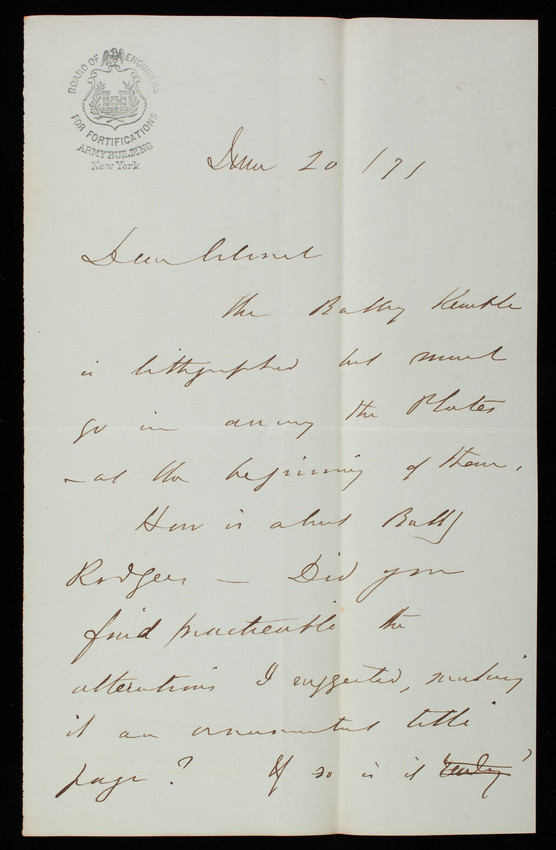 BOARD OF ENGINEERS
FOR FORTIFICATIONS
ARMY BUILDING
New York
June 20 /71
Dear Colonel
The Batty Kemble
is lithographed but must
go in among the Plates
– at the beginning of them.
How is about Batty
Rodgers — Did you
find practicable the
alterations I suggested, making
it an ornamental title
page? If so is it